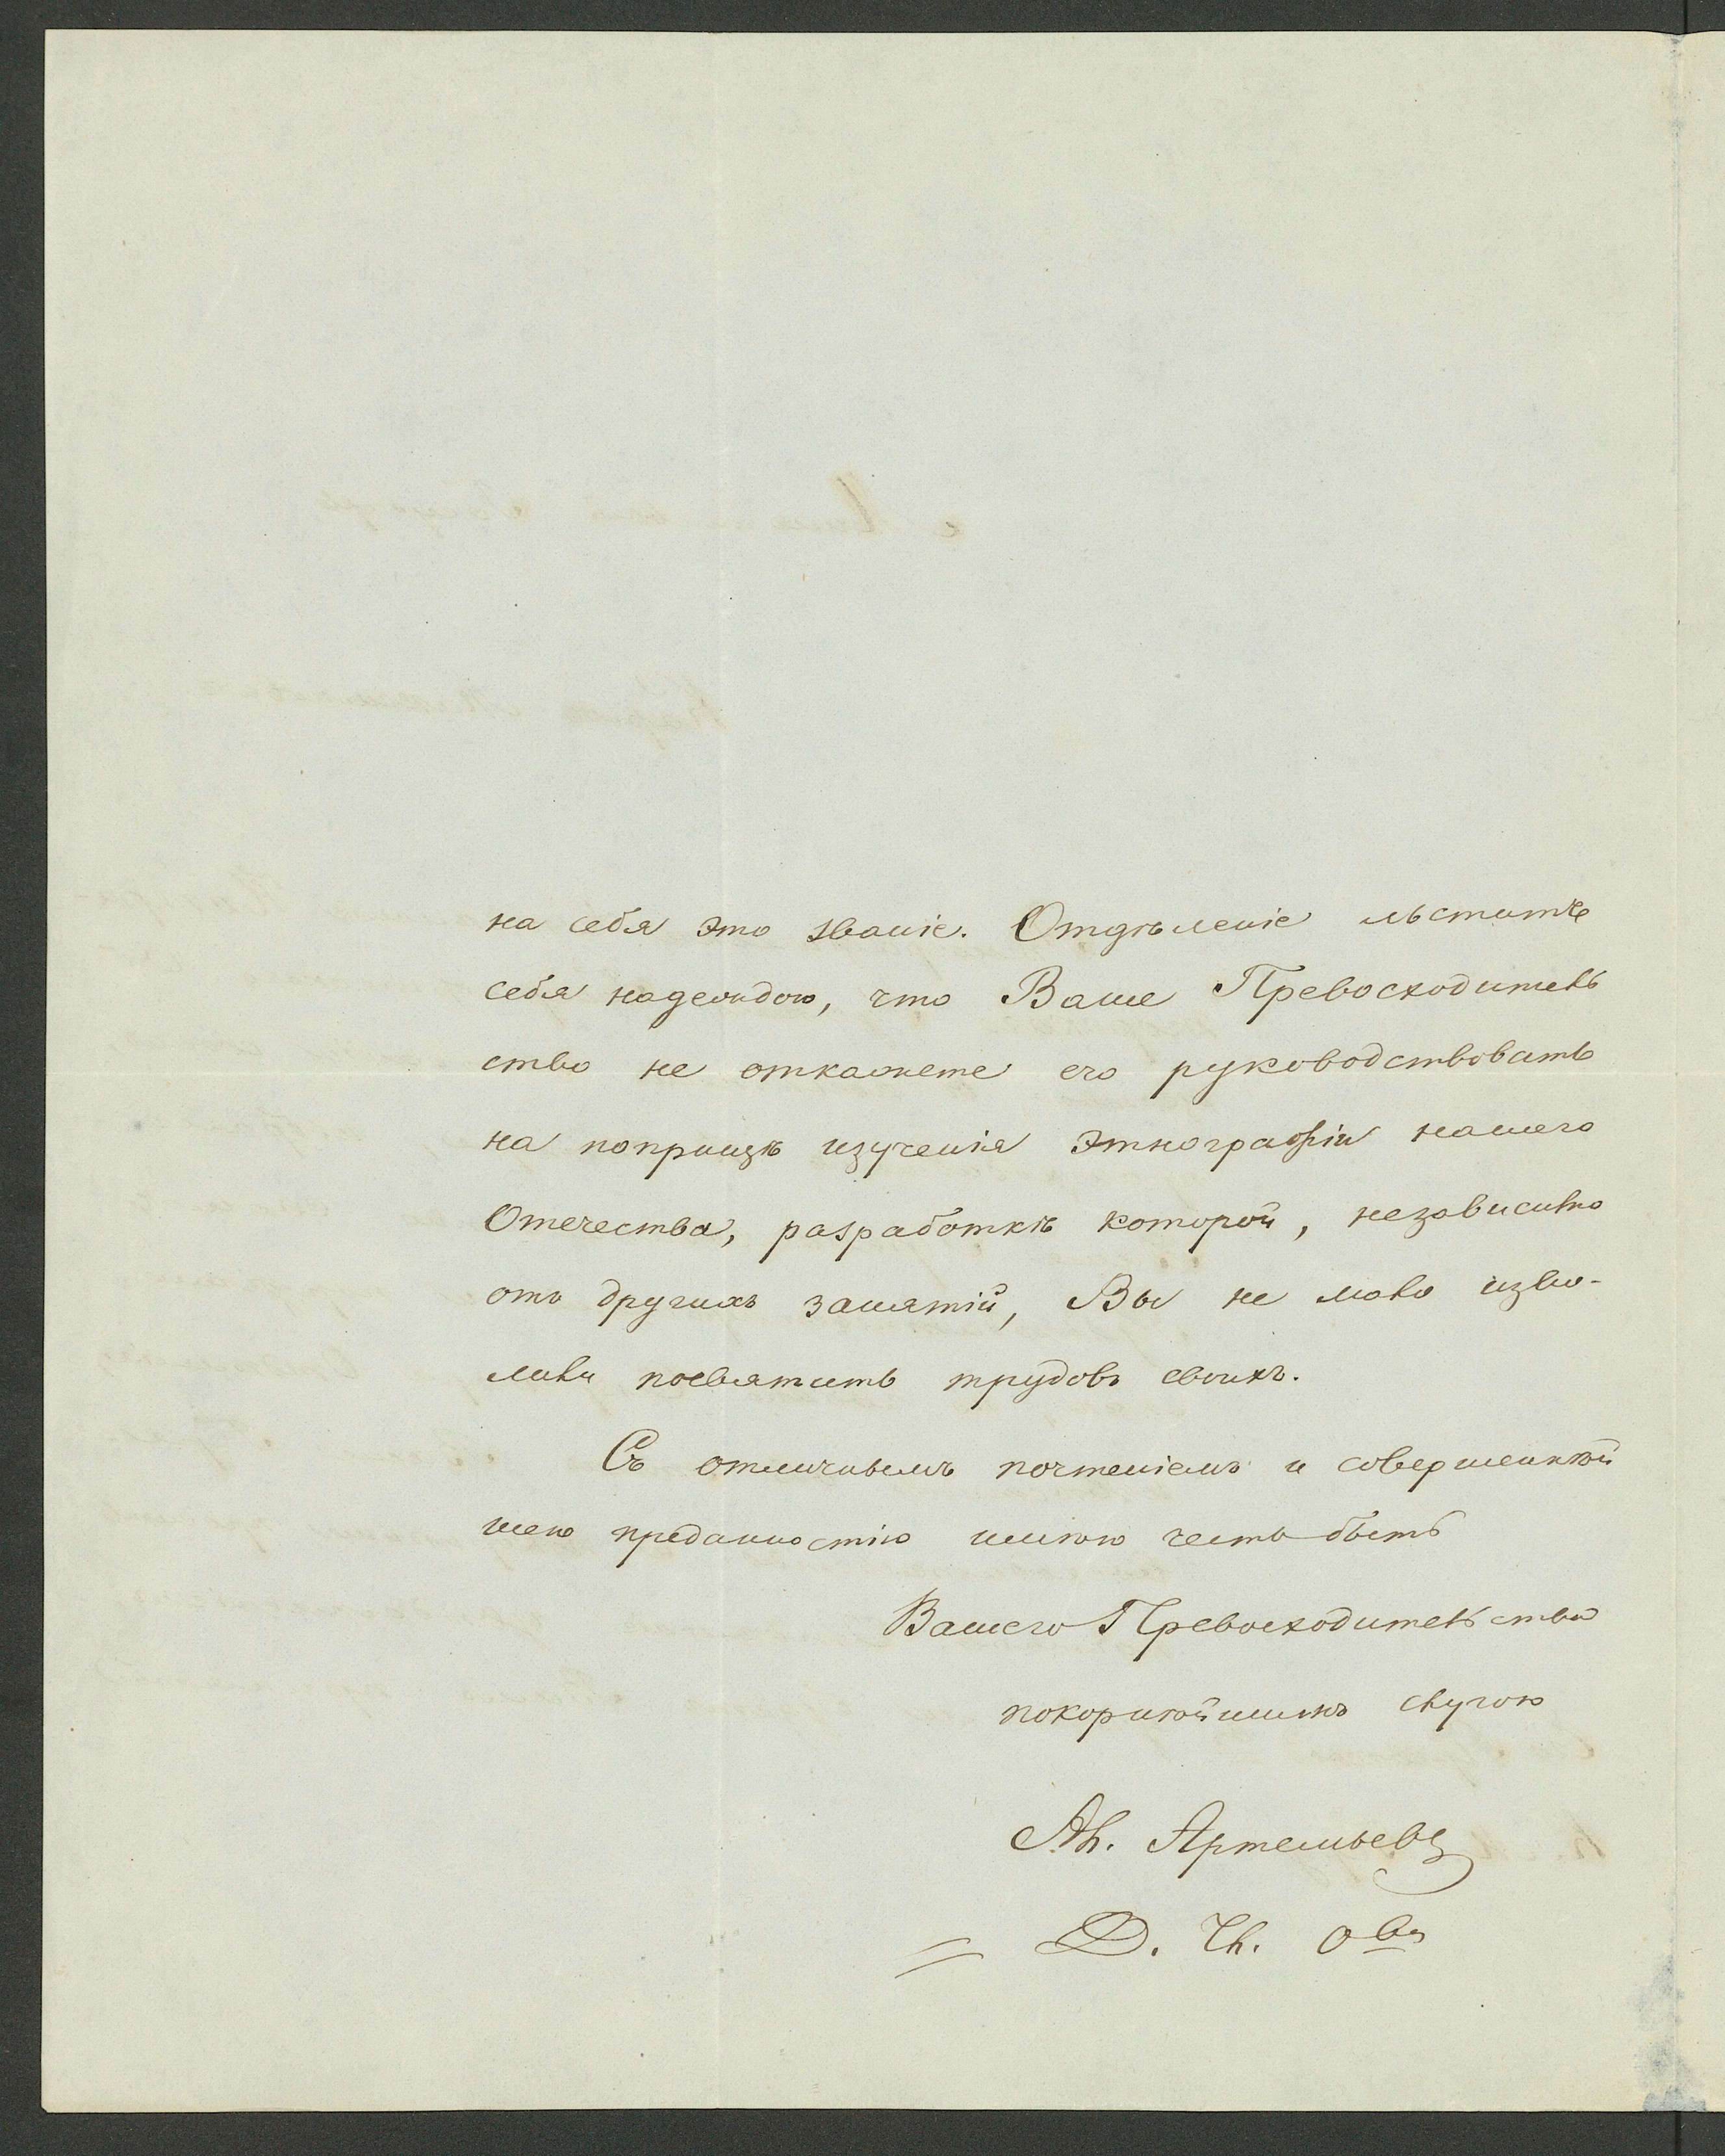 на себя это званіе. Отдѣленіе льститъ
себя надеждою, что Ваше Превосходитель
ство не откажете его руководствовать
на поприщѣ изученія этнографіи нашего
Отечества, разработкѣ которой, независимо
отъ другихъ занятій, Вы не мало изво-
лили посвятить трудовъ своихъ.
Съ отличнымъ почтеніемъ и совершеннѣй
шею преданностію имѣю честь быть
Вашего Превосходительства
покорнѣйшимъ слугою
Ал. Артемьевъ
Д. Чл. О-ва